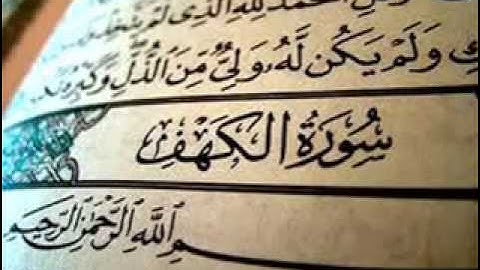 الْحَمْدُ لِلَّهِ الَّذِى لَمْ يَتَّخِذْ
وَلَمْ يَكُن لَّهُۥ وَلِىٌّ مِّنَ الذُّلِّ وَكَبِّرْهُ
سُورَةُ الكَهْفِ
بِسْمِ اللَّهِ الرَّحْمَٰنِ الرَّحِيمِ